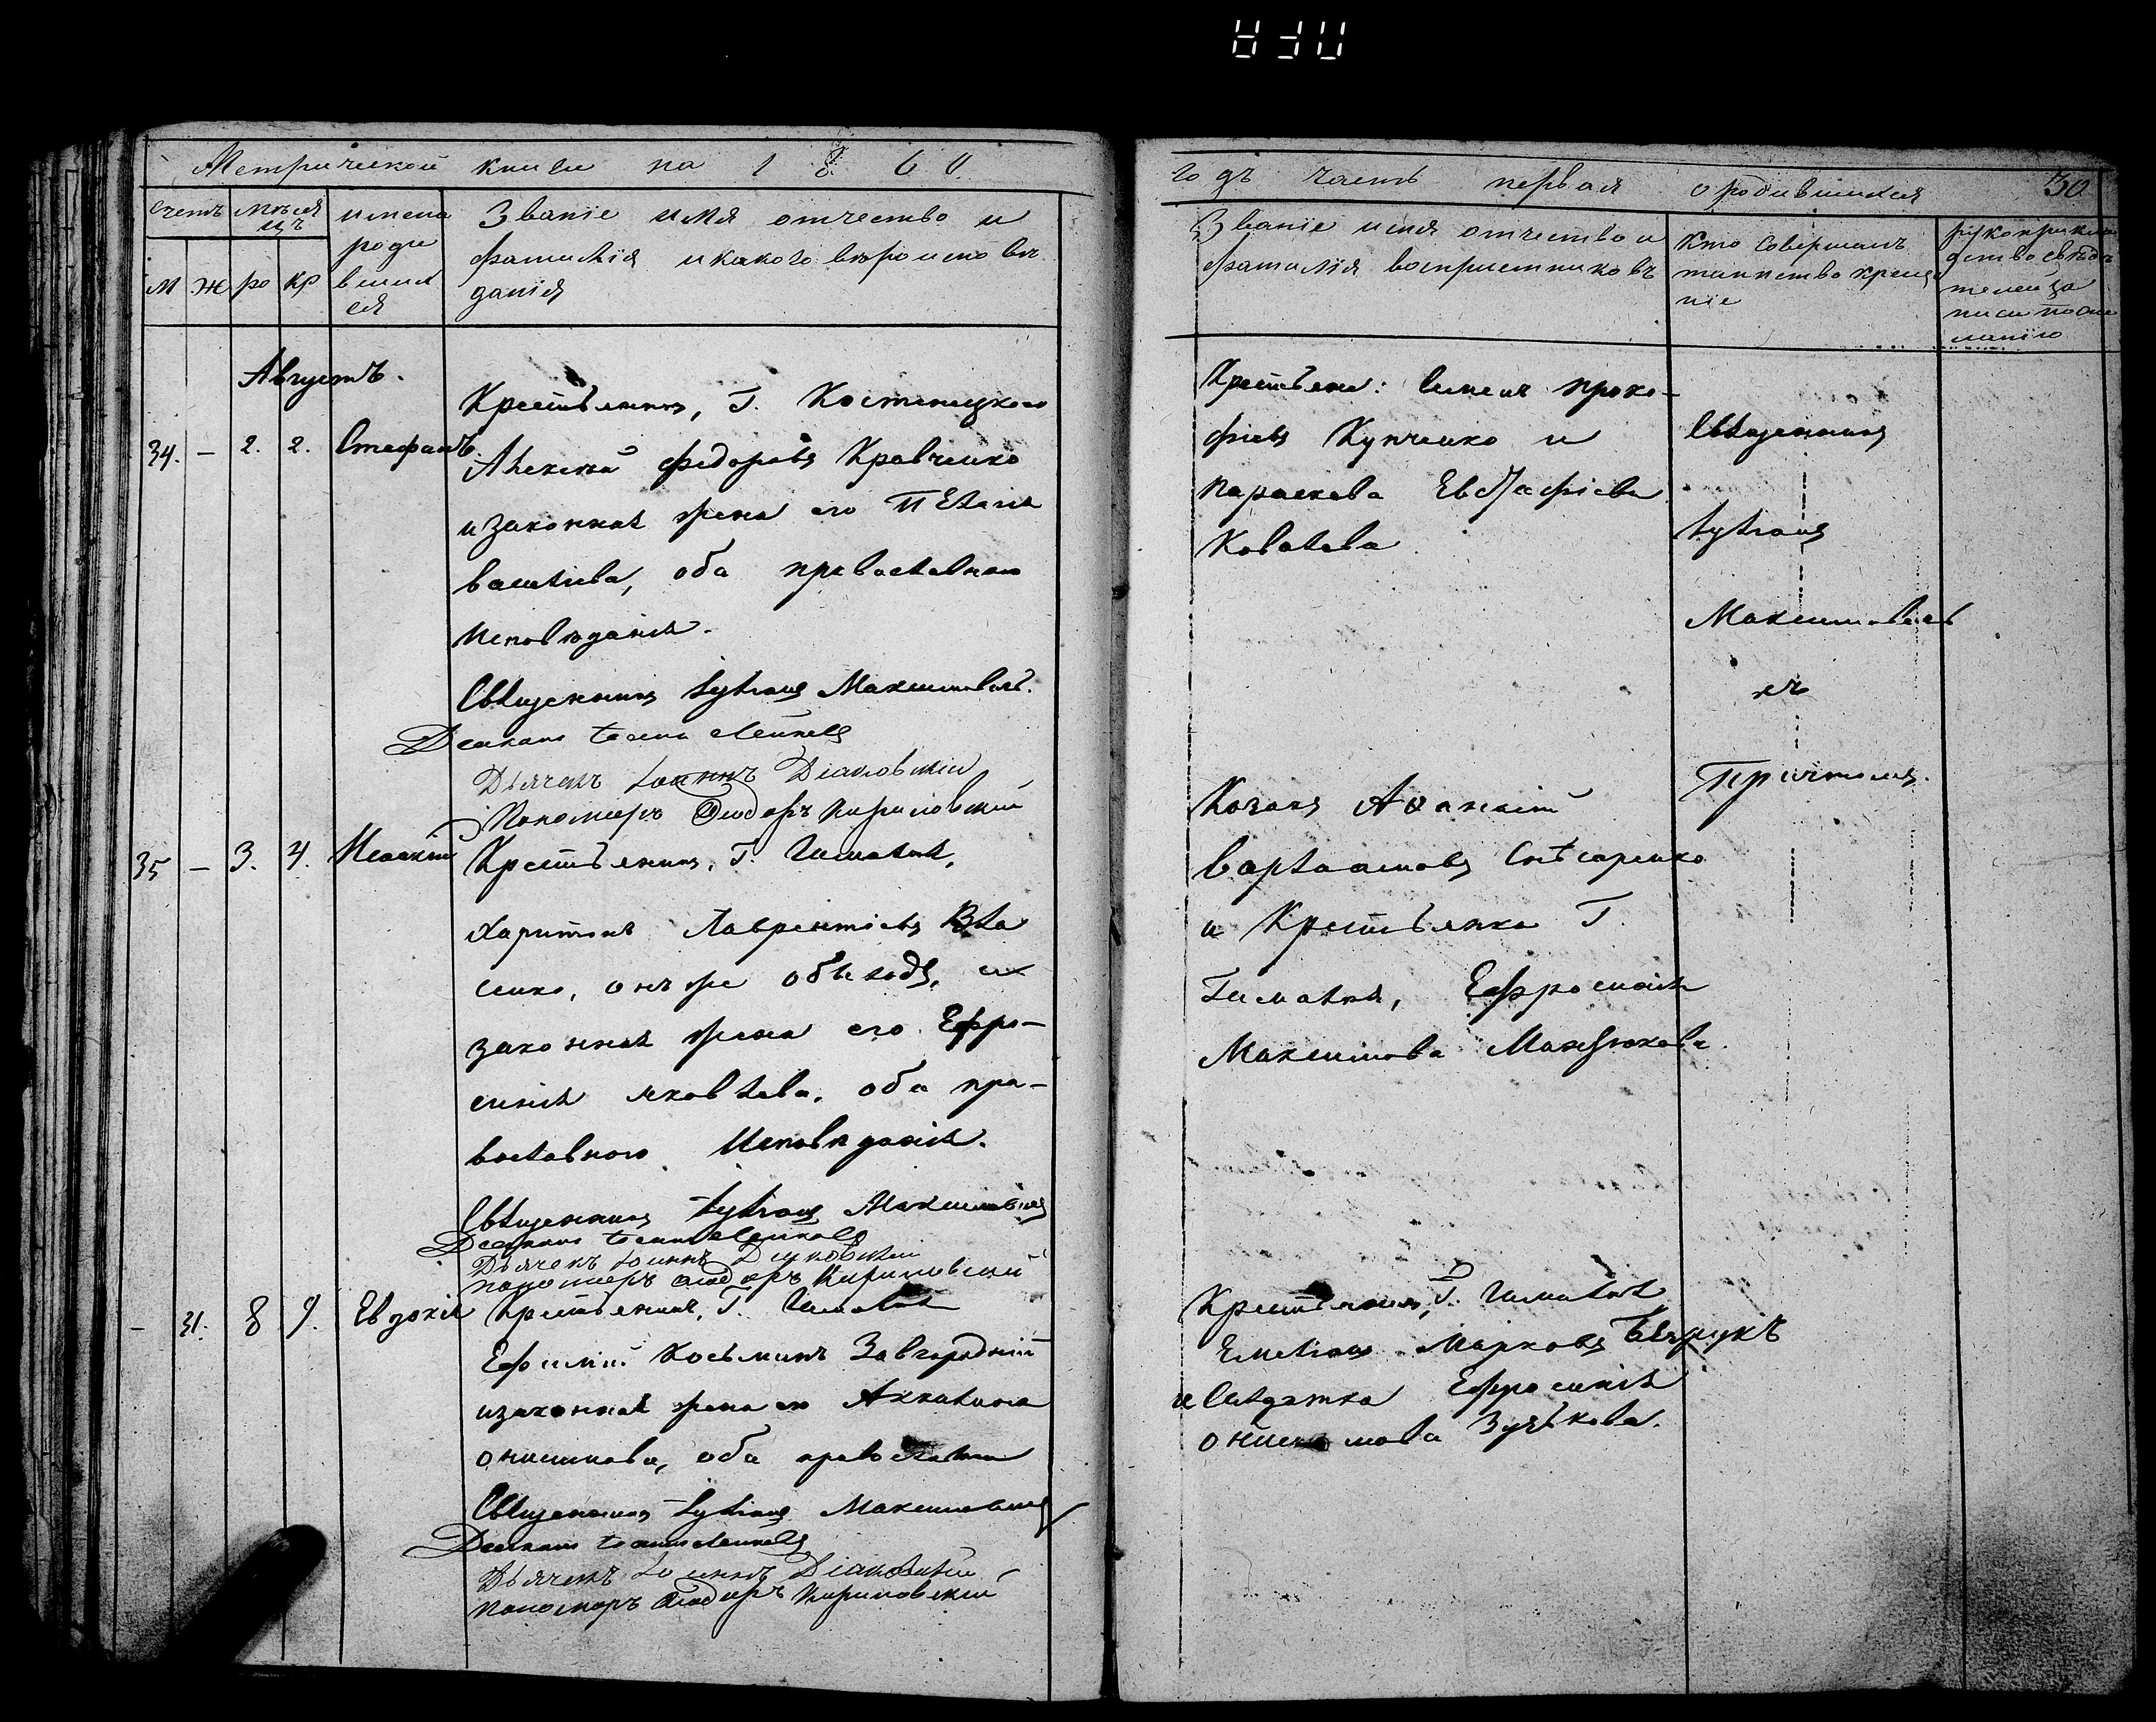 Метрической книги на 1860
годъ часть первая о родившихся 30
счетъ мѣся
цъ
имена
роди
вших
ся
Званіе имя отчество и
фамилія и какого вѣроисповѣ
данія
м ж ро кр
Званіе имя отчество и
фамилія воспріемниковъ
Кто совершалъ
таинство креще
ніе
рукоприкла
дство свѣдѣ
телей за
писи по же
ланію
Августъ.
34. — 2. 2. Стефанъ
Крестьянинъ, Г. Костенецкого
Алексѣй Федоровъ Кравченко
и законная жена его
васильева, оба православного
исповѣданія.
Священникъ Максимовичъ.
Діаконъ
Дьячекъ Іоаннъ Діаковскій
Пономарь Ѳеодоръ Кириловскій
Крестьяне: Семенъ проко-
фіевъ Купченко и
параскева
Ковалева
Священникъ
Максимовичъ
съ
Причтомъ.
35 — 3. 4. Исаакій
Крестьянинъ, Г.
Харитонъ Лаврентіевъ Вла
сенко, онъ же и
законная жена его Ефро-
синія яковлева, оба пра-
вославного Исповѣданія.
Священникъ Максимовичъ
Діаконъ
Дьячекъ Іоаннъ Діаковскій
пономарь Ѳеодоръ Кириловскій
Козакъ Аѳанасій
Варлаамовъ Слѣсаренко
и Крестьянка Г.
Ефросинія
Максимова
— 31. 8 9. Евдокія
Крестьянинъ, Г.
Ефимій Козьминъ Завгородній
и законная жена его Акилина
онисимова, оба православн
Священникъ Максимовичъ
Діаконъ
Дьячекъ Іоаннъ Діаковскій
пономарь Ѳеодоръ Кириловскій
Крестьянинъ, Г.
Емеліанъ Марковъ Бирукъ
и Солдатка Ефросинія
онисимова Зузькова.